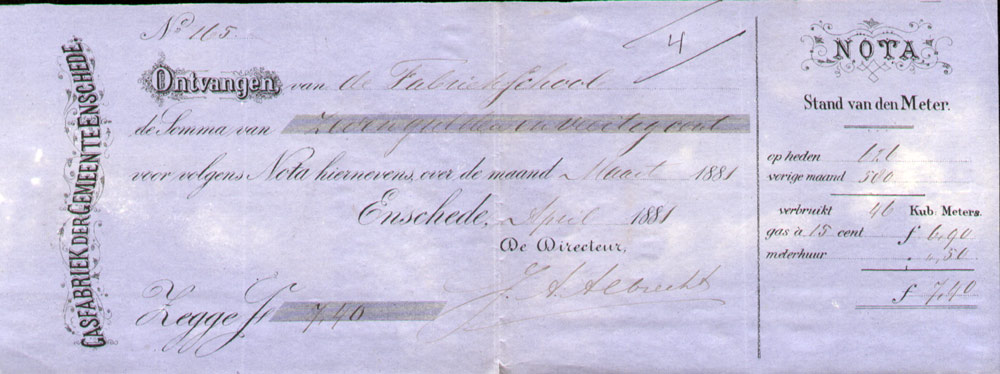 GASFABRIEK DER GEMEENTE ENSCHEDE.
No 165
4
Ontvangen van de Fabriekschool
de Somma van Zeven gulden en veertig cent
voor volgens Nota hiernevens, over de maand Maart 1881
Enschede, April 1881
De Directeur,
J. A. Albrecht
Zegge f 7,40
NOTA
Stand van den Meter.
op heden
vorige maand 500
verbruikt 46 Kub. Meters.
gas à 15 cent f 6,90
meterhuur " ,50
f 7,40